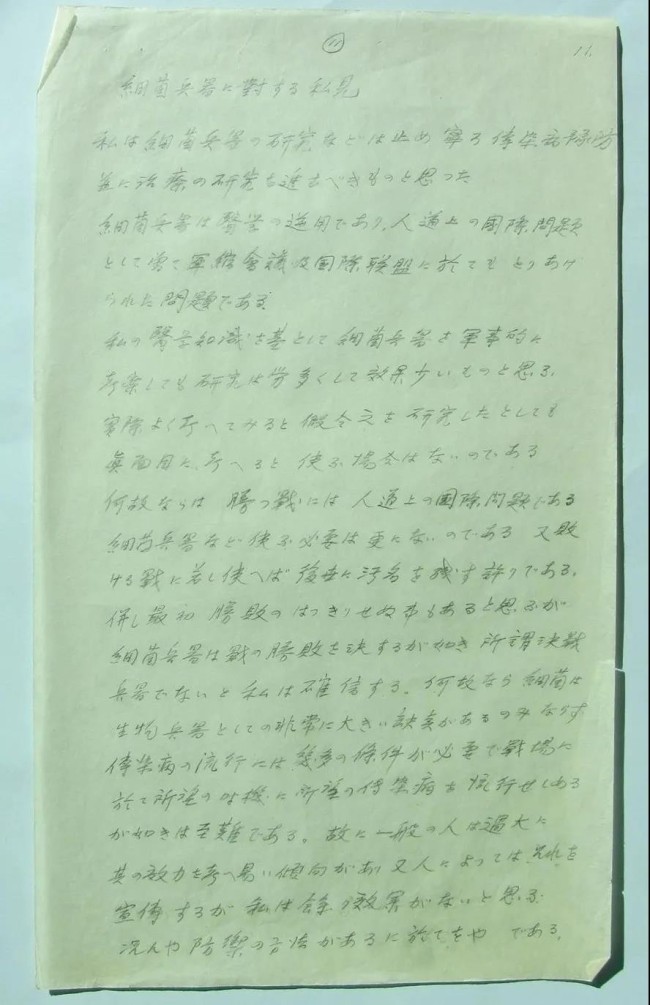 ⑪
11.
細菌兵器に對する私見
私は細菌兵器の研究などは止め寧ろ傳染病豫防
並に治療の研究を進むべきものと思った
細菌兵器は醫学の逆用であり、人道上の國際問題
として曽て軍縮會議及国際联盟に於ても とりあげ
られた問題である
私の醫学知識を基として細菌兵器を軍事的に
考察しても研究は労多くして效果少いものと思ふ、
實際よく考へてみると假令之を研究したとしても
眞面目に考へると使ふ場合はないのである
何故ならば 勝つ戰には 人道上の國際問題である
細菌兵器など使ふ必要は更にないのである 又敗
ける戰に若し使へば後世に汚名を残す許りである、
併し最初 勝敗のはっきりせぬ事もあると思ふが
細菌兵器は戰の勝敗を決するが如き所謂決戰
兵器でないと私は確信する、何故なら細菌は
生物兵器としての非常に大きい缺奌があるのみならず
傳染病の流行には幾多の條件が必要で戰場に
於て所望の時機に所望の傳染病を流行せしめる
が如きは至難である、故に一般の人は過大に
其の效力を考へ易い傾向があり又人によっては それを
宣傳するが 私は餘り效果がないと思ふ
况んや防禦の方法があるに於てをや である、